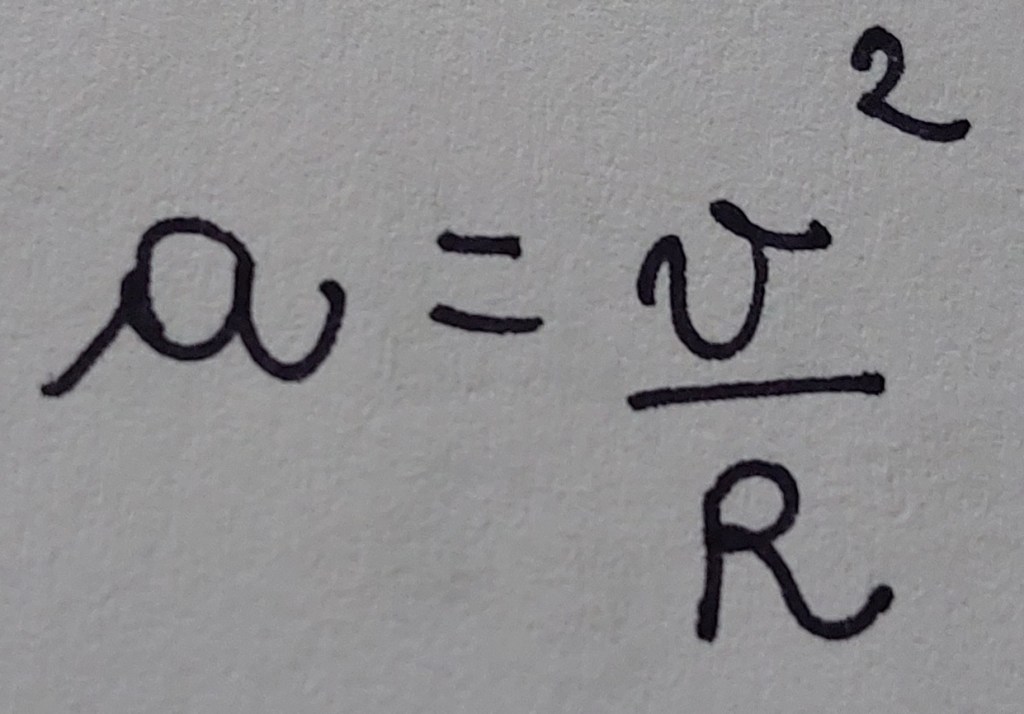 a = v²/R